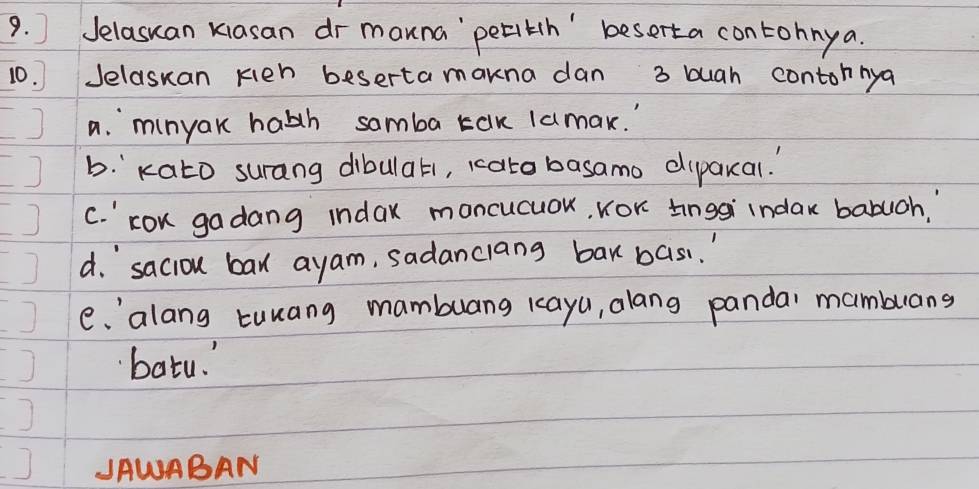 9. Jelaskan kiasan dr makna 'petitih' beserta contohnya.
10. Jelaskan kieh beserta makna dan 3 buah contohnya
a. 'minyak habih samba tak lamak.'
b. 'kato surang dibulati, kato basamo dipakai.'
c. 'kok gadang indak mancucuok, kok tinggi indak babuah.'
d. 'saciok bak ayam, sadanciang bak basi.'
e. 'alang tukang mambuang kayu, alang pandai mambuang
batu.'
JAWABAN